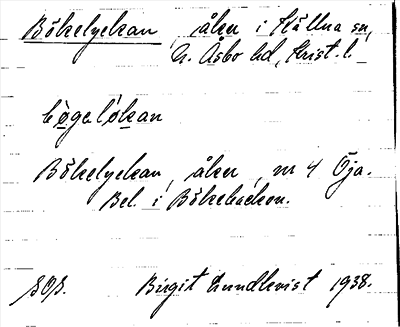 Bökelyckan, åker i Källna sn,
N. Åsbo hd, Krist. l.
bø̀gelø̀kan
Bökelyckan, åker, nr 4 Öja.
Bel. i Bökebacken.
Birgit Lundkvist 1938.